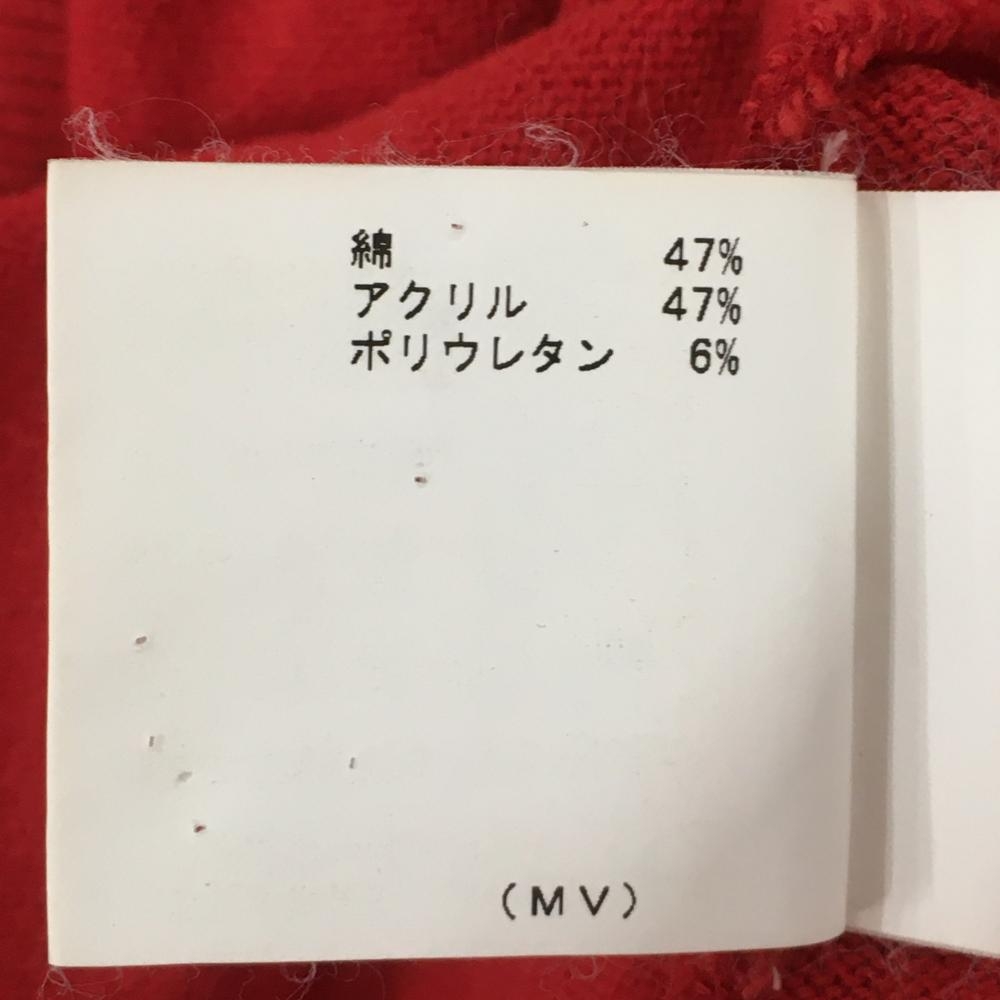 綿 47%
アクリル 47%
ポリウレタン 6%
(MV)